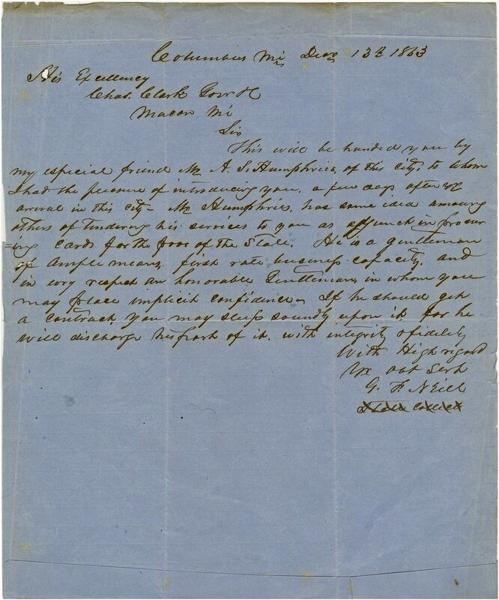 Columbus Mi Decr 13th 1863
His Excellency
Chas. Clark Govr &c
Macon Mi
Sir
This will be handed you by
my especial friend Mr A. S. Humphries, of this city, to whom
I had the pleasure of introducing you, a few days after yr
arrival in this city - Mr Humphries, has some idea among
others of Tendering his services to you as agt in procur
=ing cards for the poor of the State. He is a gentleman
of ample means, first rate business capacity, and
in evry respect an honorable Gentleman, in whom you
may place implicit confidence. If he should get
a contract, you may sleep soundly upon it for he
will discharge his part of it, with integrity & fidelity
With High regard
Yr obt Servt
G. F. Neill